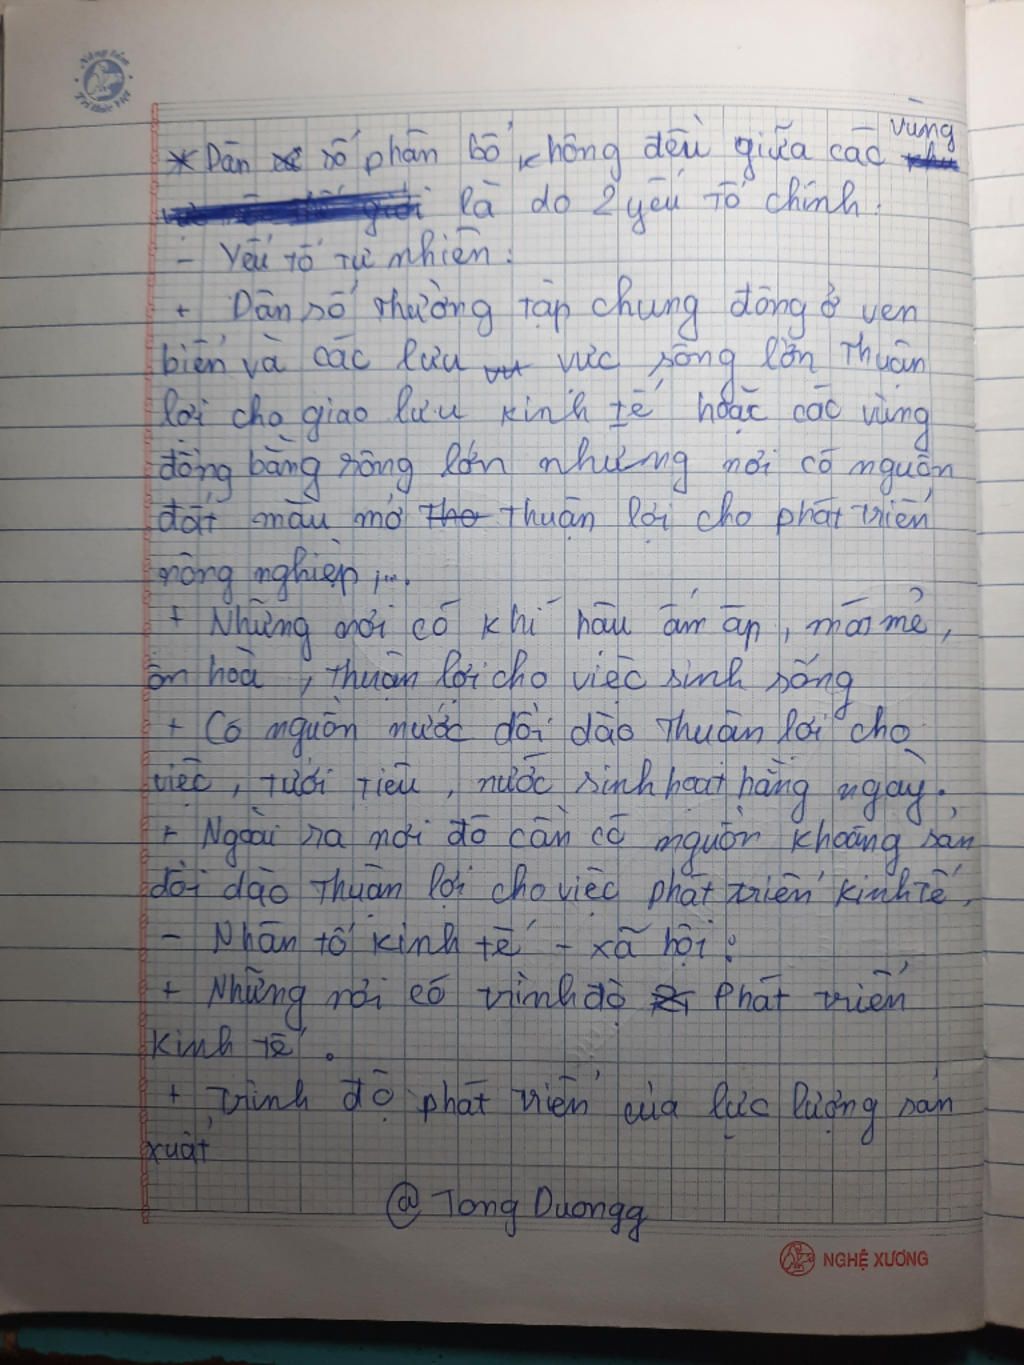 Nâng tầm
Trí thức Việt
* Dân số phân bố không đều giữa các vùng
là do 2 yếu tố chính:
- Yếu tố tự nhiên:
+ Dân số thường tập chung đông ở ven
biển và các lưu vực sông lớn thuận
lợi cho giao lưu kinh tế hoặc các vùng
đồng bằng rộng lớn những nơi có nguồn
đất màu mỡ thuận lợi cho phát triển
nông nghiệp,...
+ Những nơi có khí hậu ấm áp, mát mẻ,
ôn hoà, thuận lợi cho việc sinh sống
+ Có nguồn nước dồi dào thuận lợi cho
việc, tưới tiêu, nước sinh hoạt hằng ngày.
+ Ngoài ra nơi đó cần có nguồn khoáng sản
dồi dào thuận lợi cho việc phát triển kinh tế.
- Nhân tố kinh tế - xã hội:
+ Những nơi có trình độ phát triển
kinh tế.
+ trình độ phát triển của lực lượng sản
xuất
@ Tong Duongg
NGHỆ XƯƠNG